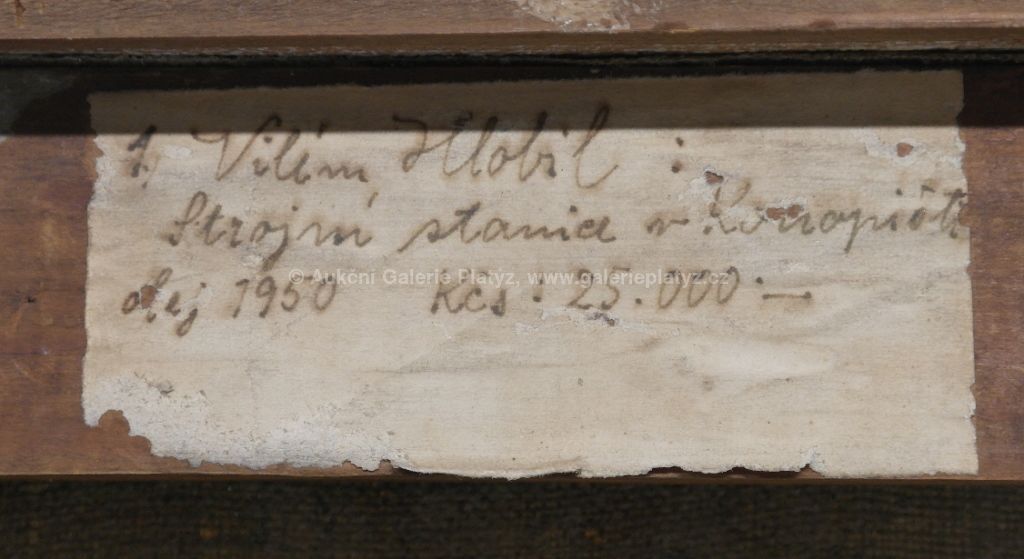 1, Vilém Hlobil :
Strojní stanice v Konopišti
olej 1950 Kčs : 25.000.—
© Aukční Galerie Platýz, www.galerieplatyz.cz